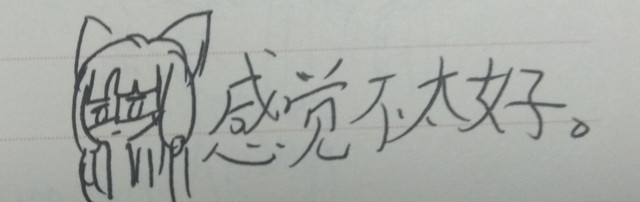 感觉不太好。